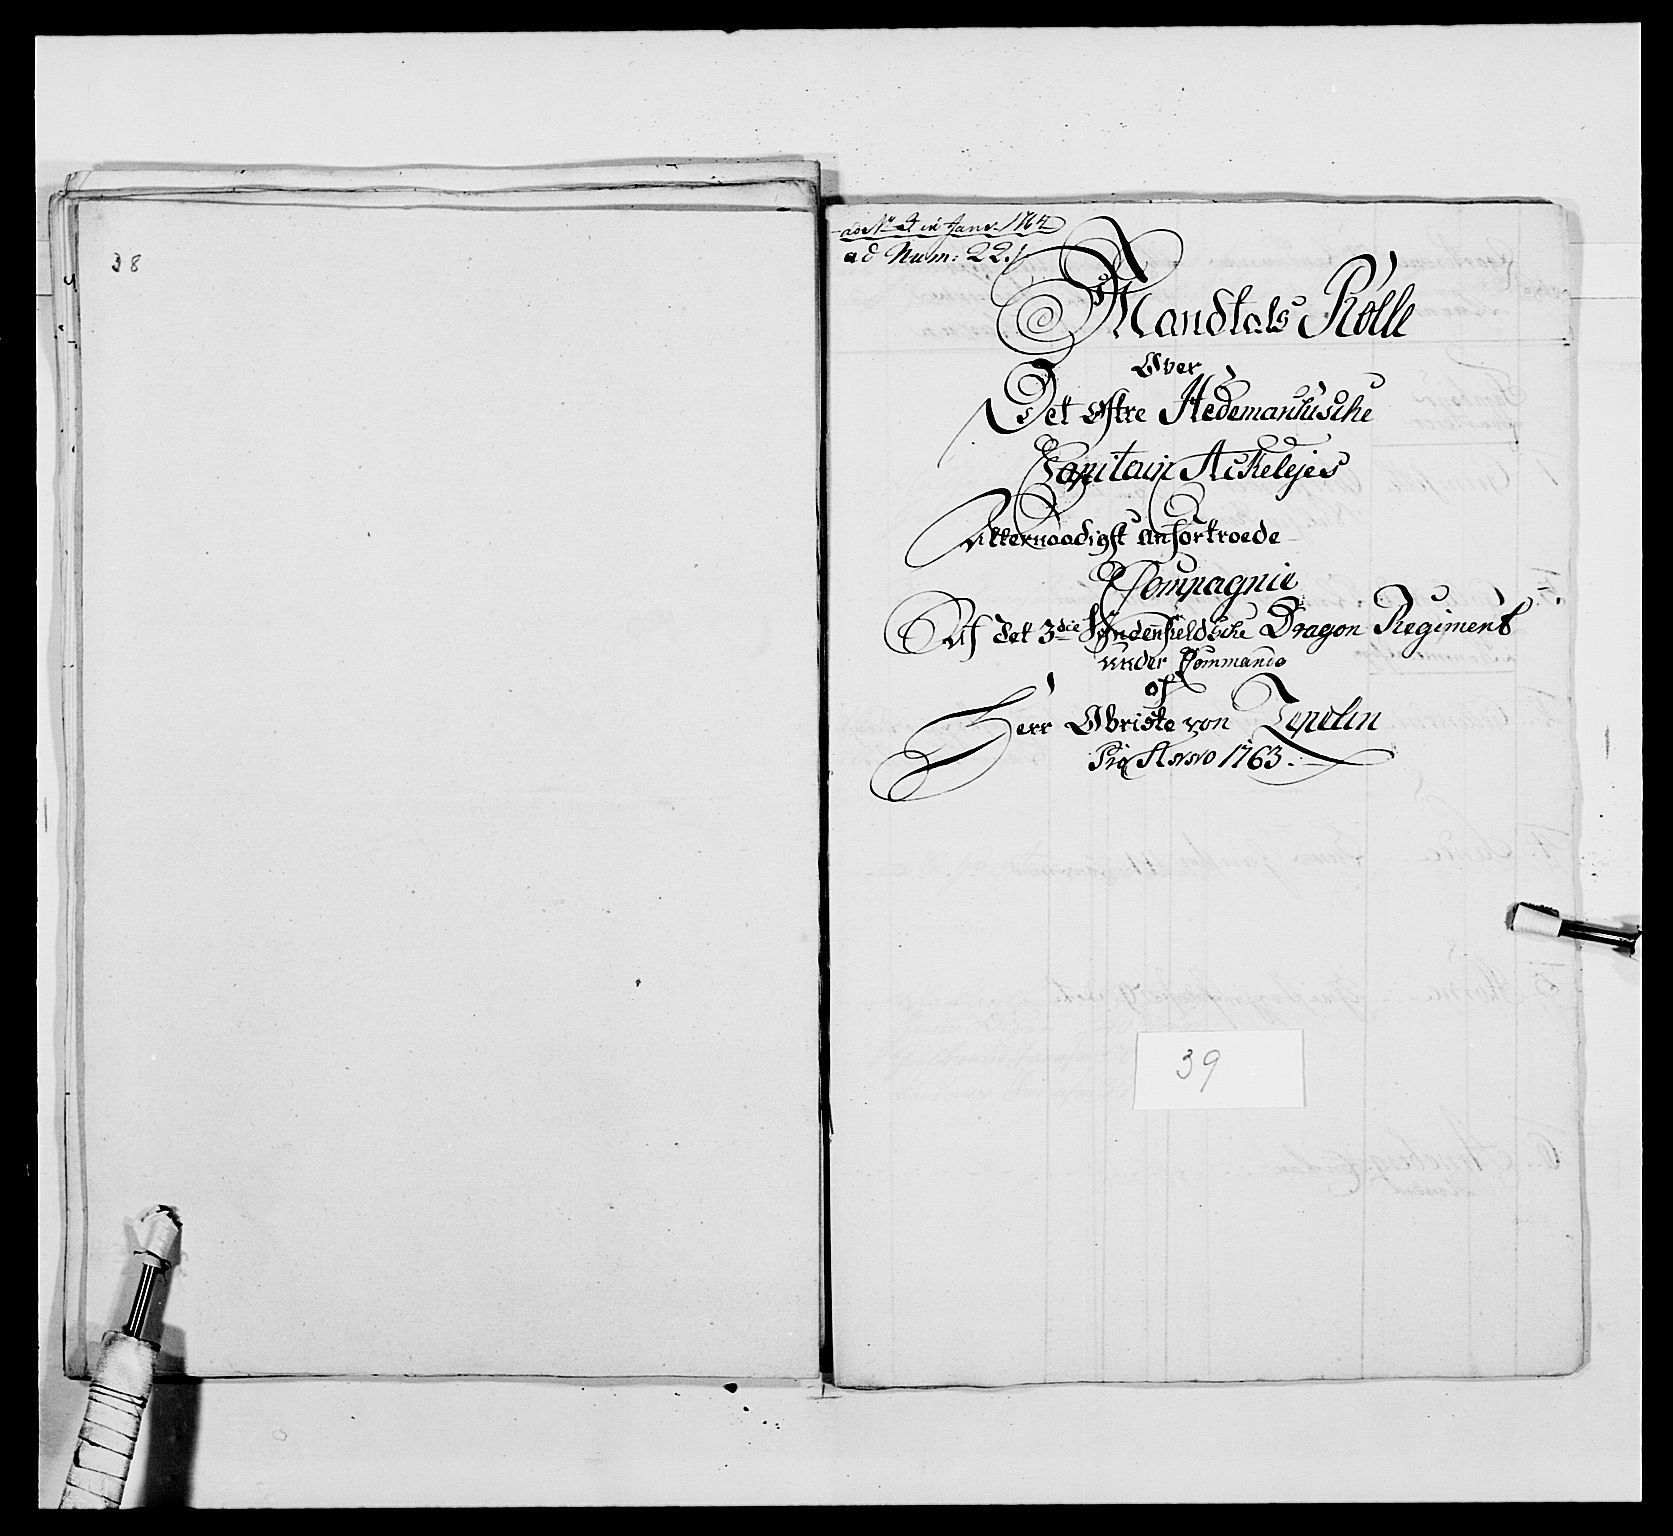 38
ad No 3 in Janr. 1764
ad Num: 22./.
Mandtals Rolle
Over
Det østre Hedemarkische
Capitain Ackelejes
Allernaadigst anfortroede
Compagnie
Af det 3die Søndenfieldsche Dragon Regiment
under Commando
af
Herr Obriste von Zepelin
Pro Anno 1763.
39